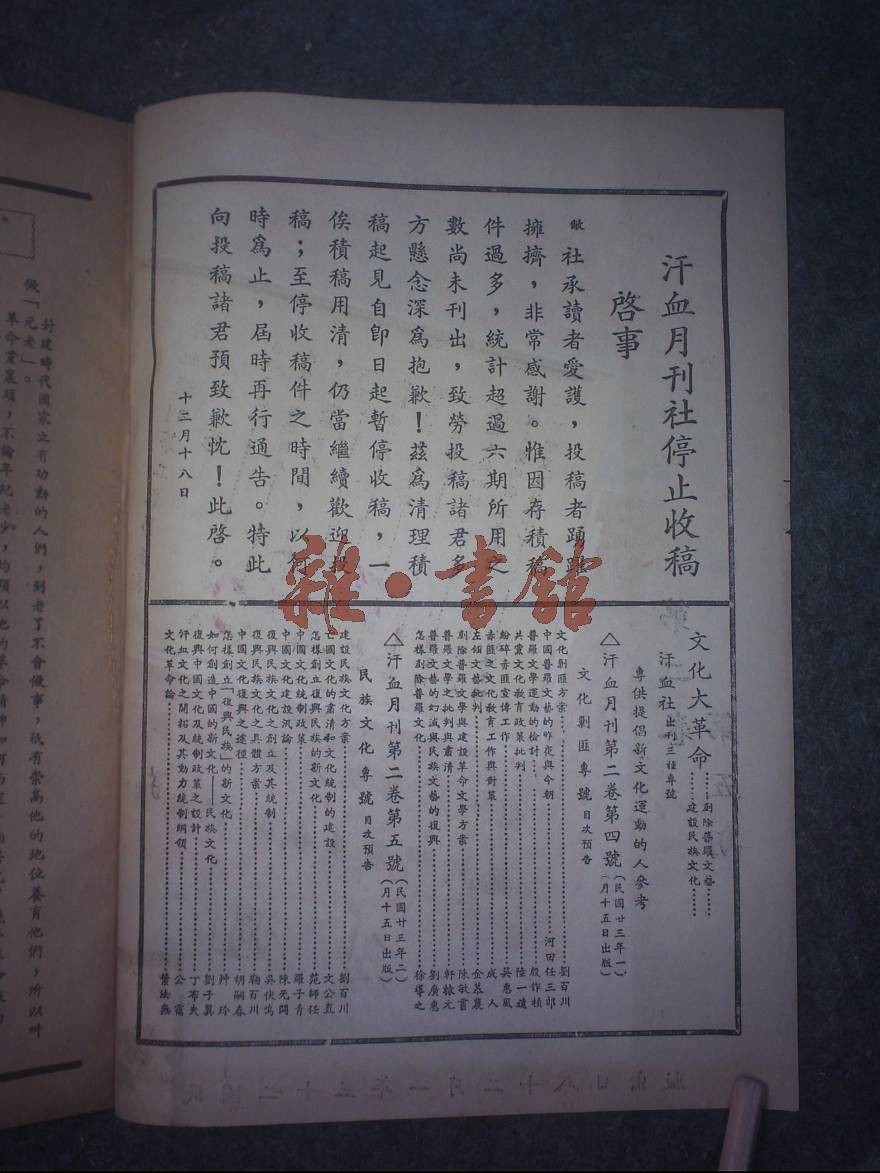 汗血月刊社停止收稿
啓事
敝社承讀者愛護，投稿者踴躍
擁擠，非常感謝。惟因存積稿
件過多，統計超過六期所用之
數尚未刊出，致勞投稿諸君多
方懸念深爲抱歉！茲爲清理積
稿起見自卽日起暫停收稿，一
俟積稿用清，仍當繼續歡迎投
稿；至停收稿件之時間，以何
時爲止，屆時再行通告。特此
向投稿諸君預致歉忱！此啓。
十二月十八日
文化大革命……剷除普羅文藝……
……建設民族文化……
汗血社出刊三種專號
專供提倡新文化運動的人參考
△汗血月刊第二卷第四號（民國廿三年一月十五日出版）
文化剿匪專號 目次預告
文化剿匪方案……劉百川
中國普羅文藝的昨夜與今朝……河田任三郎
普羅文學運動的檢討……殷作楨
共黨文化教育政策批判……陸一遠
紛碎赤匪宣傳工作……吳惠風
赤匪之文化教育工作與對策……成人
左傾文藝批判……金慕農
剷除普羅文學與建設革命文學方案……陳敏書
普羅文學之批判與肅清……軒轅元
普羅文藝的幻滅與民族文藝的復興……劉廣惠
怎樣剷除普羅文化……徐導之
△汗血月刊第二卷第五號（民國廿三年二月十五日出版）
民族文化專號 目次預告
建設民族文化方案……劉百川
亡國文化的肅清和文化統制的建設……文公直
怎樣創立復興民族的新文化……范師任
中國文化統制政策……羅子青
中國文化建設汎論……陳元開
復興民族文化之創立及其統制……吳伏鳴
復興民族文化之具體方案……鞠百川
中國文化復興之途徑……胡嗣春
怎樣創立「復興民族」的新文化……艸玲
如何創造中國的新文化——民族文化……劉子翼
復興中國文化及統制政策之設計……丁布夫
汗血文化之開拓及其動力統制綱領……公靄
文化革命論……葉法無
封建時代國家立有功勳的人們，到老了不會做事，祇有崇高他的地位養育他們，所以叫
做「元老」。
革命黨裏頭，不論年紀老少，
雜·書館
民國二十三年一月二十八日出版